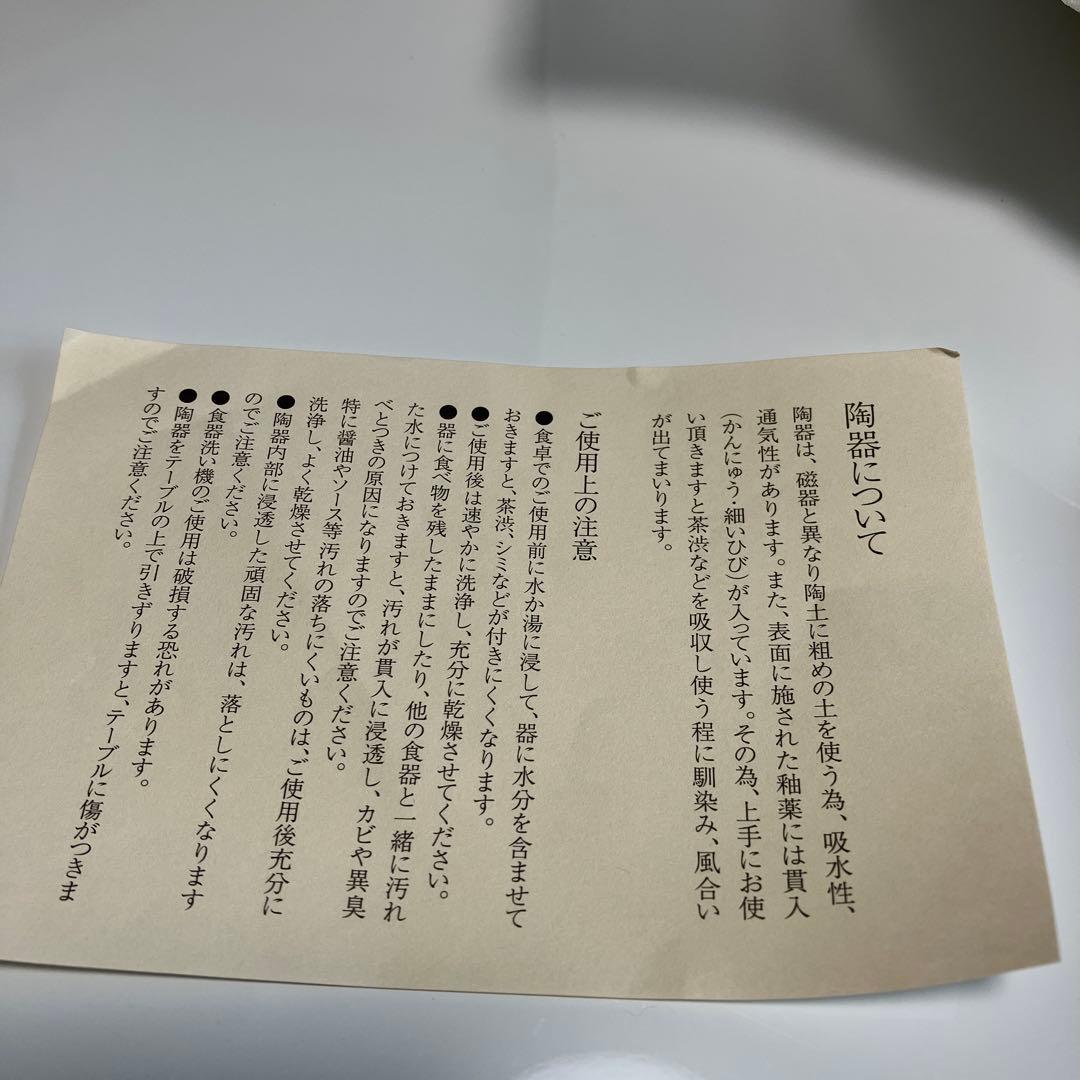 陶器について
陶器は、磁器と異なり陶土に粗めの土を使う為、吸水性、
通気性があります。また、表面に施された釉薬には貫入
（かんにゅう・細いひび）が入っています。その為、上手にお使
い頂きますと茶渋などを吸収し使う程に馴染み、風合い
が出てまいります。
ご使用上の注意
●食卓でのご使用前に水か湯に浸して、器に水分を含ませて
おきますと、茶渋、シミなどが付きにくくなります。
●ご使用後は速やかに洗浄し、充分に乾燥させてください。
●器に食べ物を残したままにしたり、他の食器と一緒に汚れ
た水につけておきますと、汚れが貫入に浸透し、カビや異臭
べとつきの原因になりますのでご注意ください。
特に醤油やソース等汚れの落ちにくいものは、ご使用後充分に
洗浄し、よく乾燥させてください。
●陶器内部に浸透した頑固な汚れは、落としにくくなります
のでご注意ください。
●食器洗い機のご使用は破損する恐れがあります。
●陶器をテーブルの上で引きずりますと、テーブルに傷がつきま
すのでご注意ください。